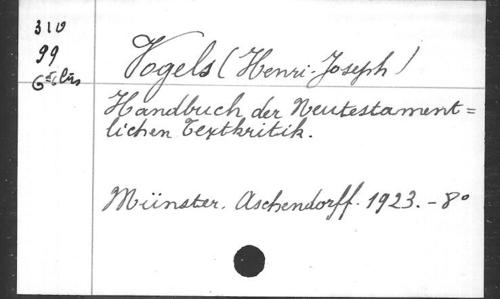 310
99
Vogels (Henri-Joseph)
Handbuch der Neutestament=
lichen Textkritik.
Münster. Aschendorff. 1923. - 8°